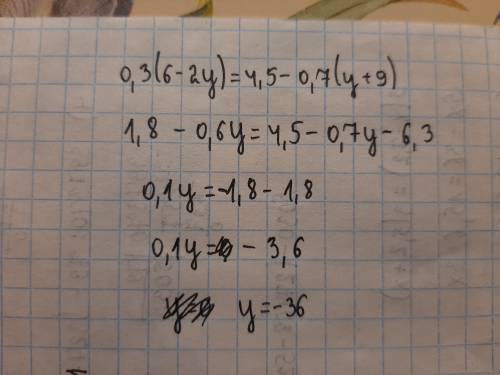 0,3(6-2y)=4,5-0,7(y+9)
1,8-0,6y=4,5-0,7y-6,3
0,1y=-1,8-1,8
0,1y=-3,6
y=-36